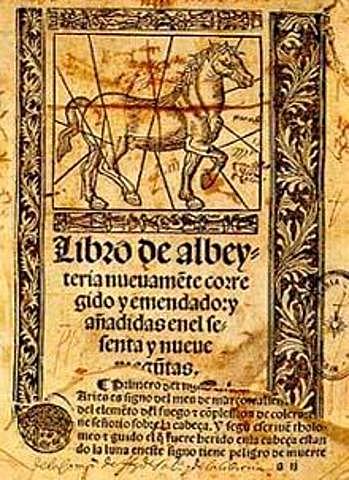 Libro de albey-
teria nuevamẽte corre
gido y emendado: y
añadidas enel se-
senta y nueve
Primero del
Aries es signo del mes de março
del elemẽto del fuego ⁊ cõplession de colera:
ne señorio sobre la cabeça. Y segũ escrive tholo-
meo ⁊ guido el q̃ fuere herido enla cabeça estan
do la luna eneste signo tiene peligro de muerte
a ij